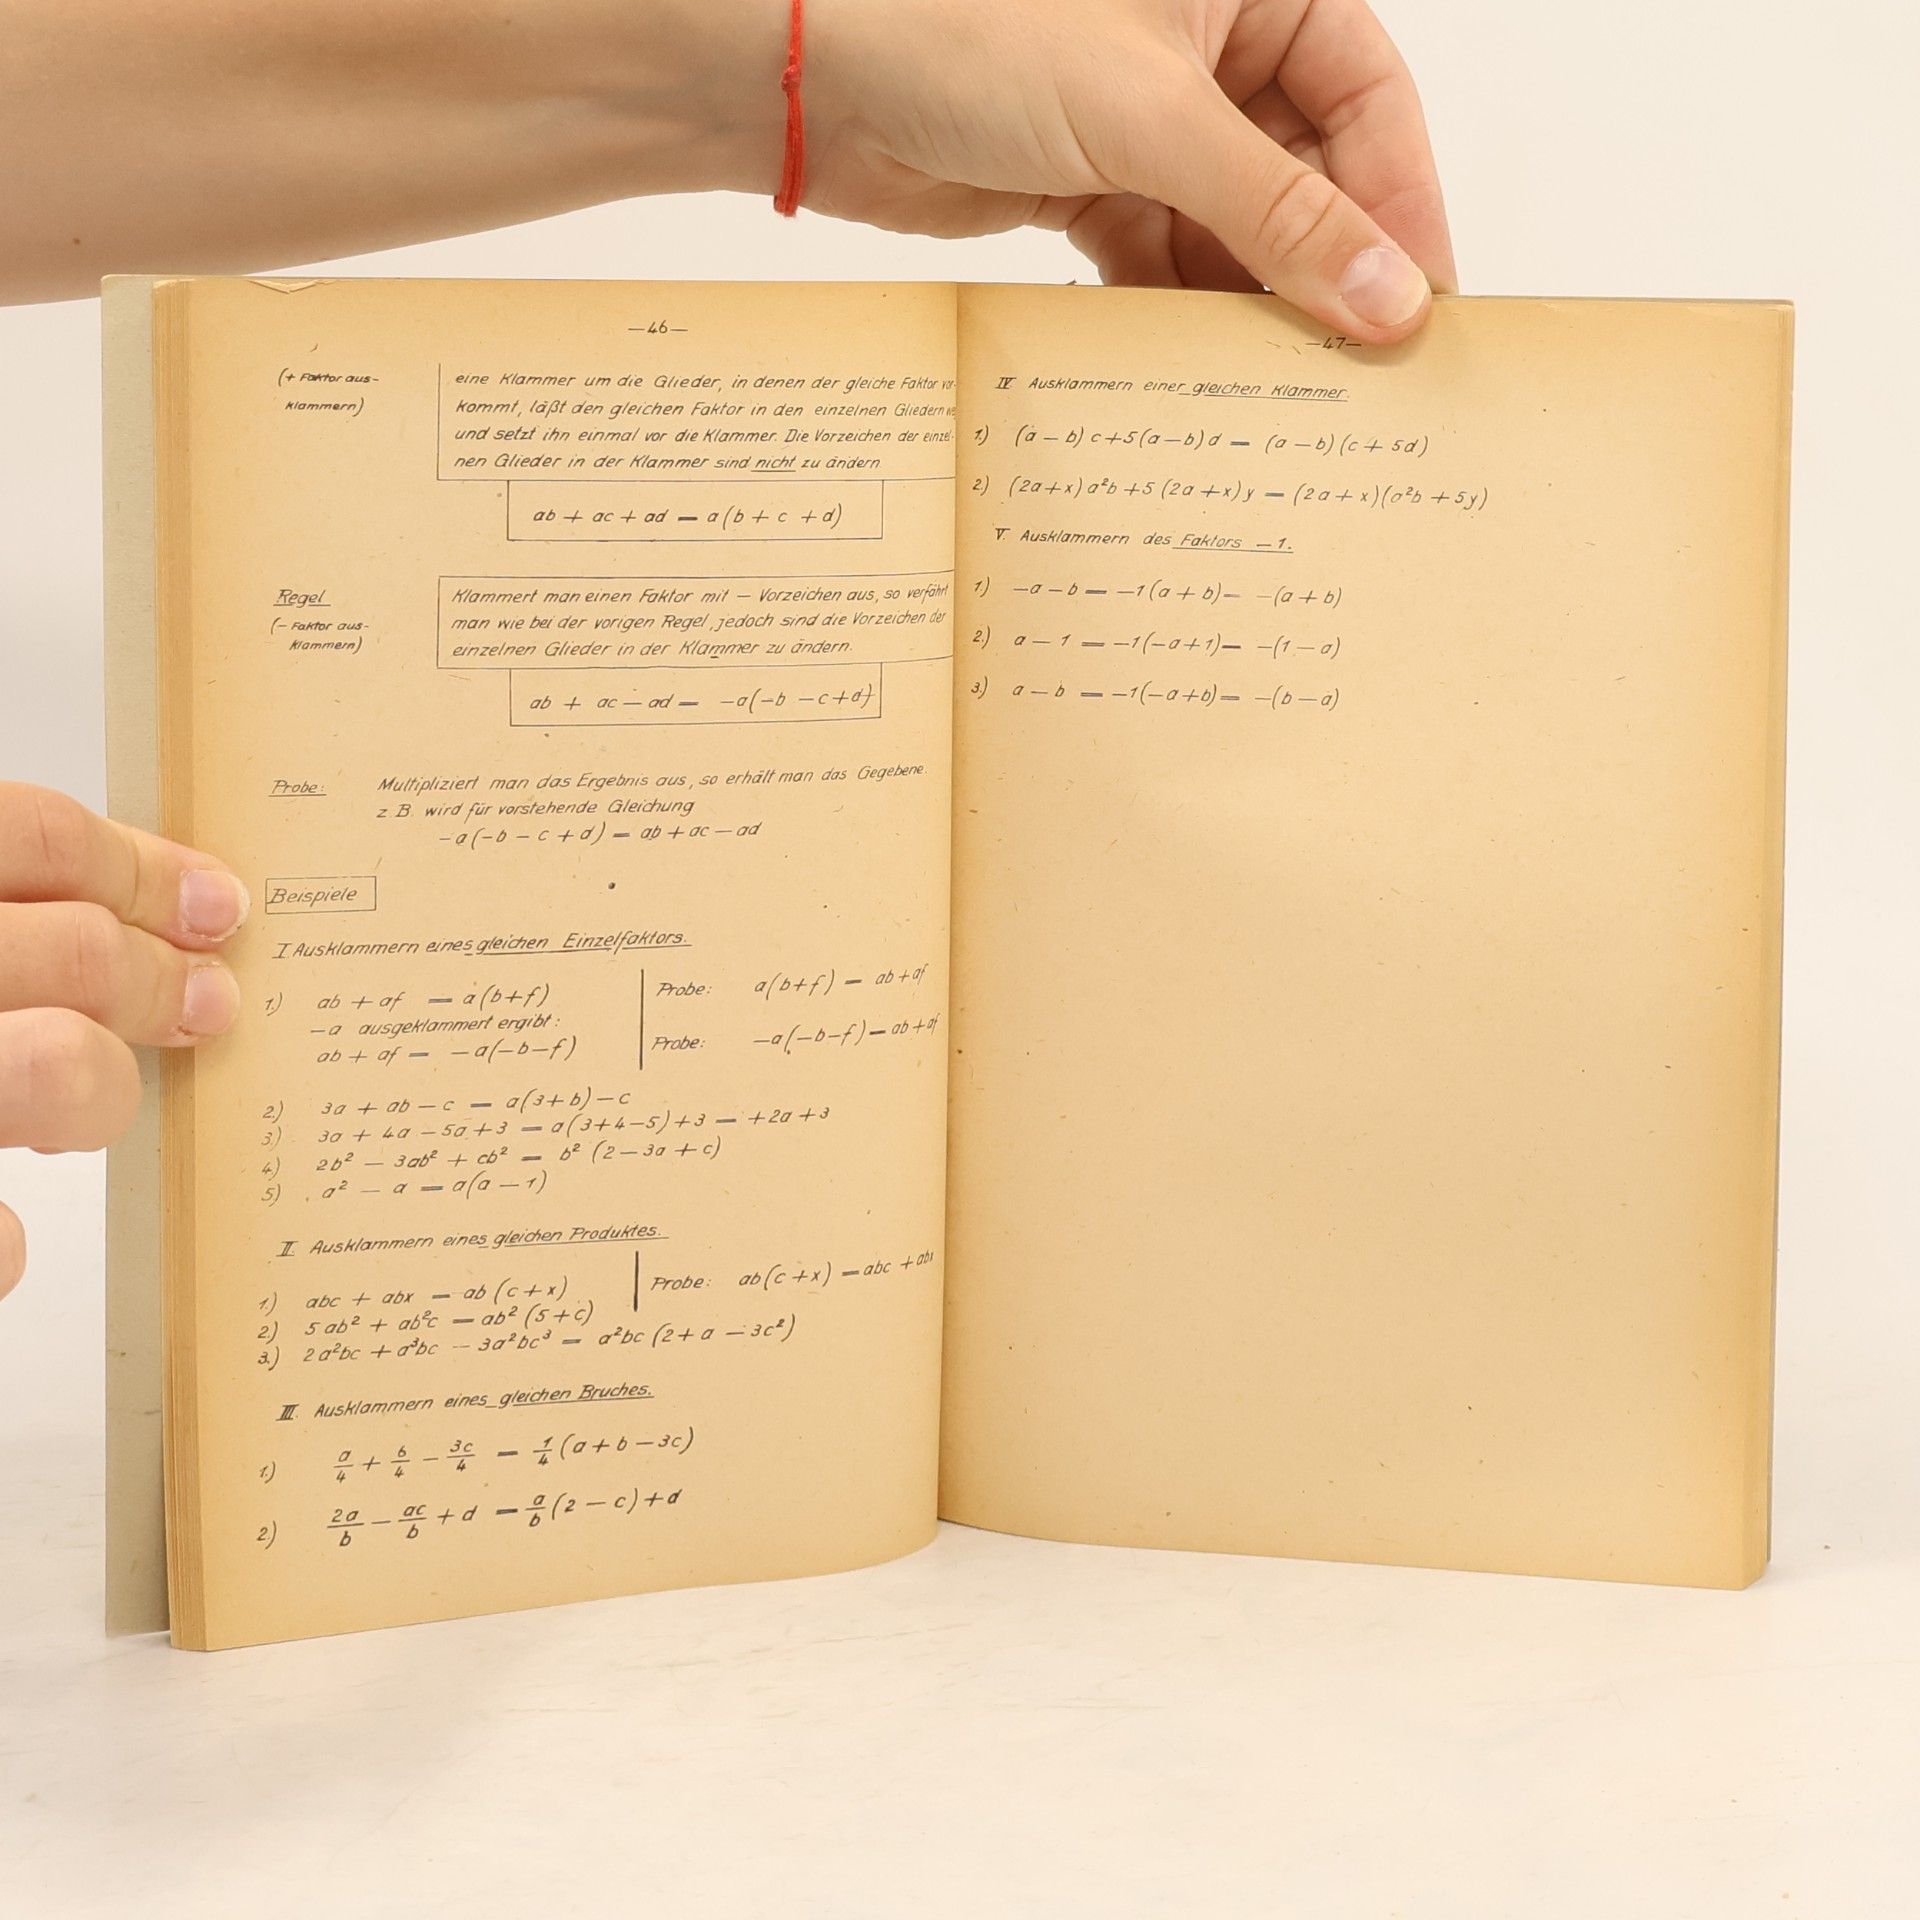 —46—
(+ Faktor aus-
klammern)
eine Klammer um die Glieder, in denen der gleiche Faktor vor-
kommt, läßt den gleichen Faktor in den einzelnen Gliedern
und setzt ihn einmal vor die Klammer. Die Vorzeichen der einzel-
nen Glieder in der Klammer sind nicht zu ändern.
ab + ac + ad = a(b + c + d)
Regel
(− Faktor aus-
klammern)
Klammert man einen Faktor mit − Vorzeichen aus, so verfährt
man wie bei der vorigen Regel, jedoch sind die Vorzeichen der
einzelnen Glieder in der Klammer zu ändern.
ab + ac − ad = −a(−b − c + d)
Probe: Multipliziert man das Ergebnis aus, so erhält man das Gegebene.
z.B. wird für vorstehende Gleichung
−a(−b − c + d) = ab + ac − ad
Beispiele
I Ausklammern eines gleichen Einzelfaktors.
1.) ab + af = a(b+f) Probe: a(b+f) = ab+af
−a ausgeklammert ergibt:
ab + af = −a(−b−f) Probe: −a(−b−f) = ab+af
2.) 3a + ab − c = a(3+b) − c
3.) 3a + 4a − 5a + 3 = a(3+4−5)+3 = +2a+3
4.) 2b² − 3ab² + cb² = b² (2 − 3a + c)
5.) a² − a = a(a − 1)
II. Ausklammern eines gleichen Produktes.
1.) abc + abx = ab (c + x) Probe: ab(c + x) = abc + abx
2.) 5ab² + ab²c = ab² (5 + c)
3.) 2a²bc + a³bc − 3a²bc³ = a²bc (2 + a − 3c²)
III. Ausklammern eines gleichen Bruches.
1.) a/4 + b/4 − 3c/4 = 1/4 (a + b − 3c)
2.) 2a/b − ac/b + d = a/b (2 − c) + d
—47—
IV. Ausklammern einer gleichen Klammer.
1.) (a − b) c + 5(a − b) d = (a − b)(c + 5d)
2.) (2a + x) a²b + 5 (2a + x) y = (2a + x)(a²b + 5y)
V. Ausklammern des Faktors −1.
1.) −a − b = −1(a + b) = −(a + b)
2.) a − 1 = −1(−a + 1) = −(1 − a)
3.) a − b = −1(−a + b) = −(b − a)